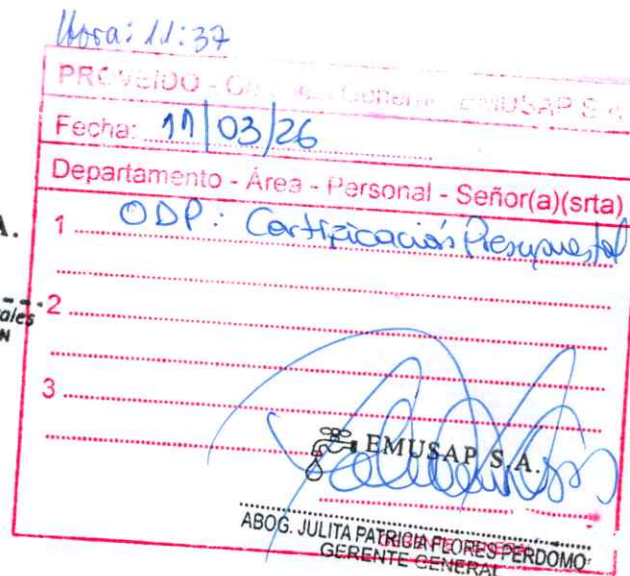 Hora: 11:37
PROVEIDO - General EMUSAP S.A.
Fecha: 11/03/26
Departamento - Área - Personal - Señor(a)(srta)
A.
1 ODP: Certificación Presupuestal
ales
N
2
3
EMUSAP S.A.
ABOG. JULITA PATRICIA FLORES PERDOMO
GERENTE GENERAL